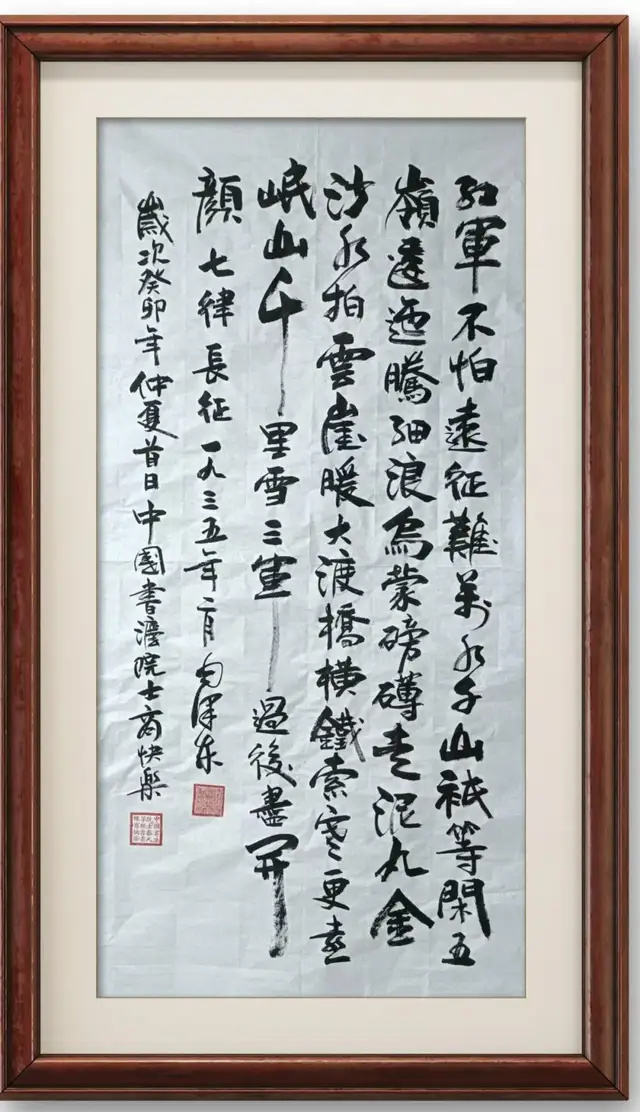 紅軍不怕遠征難萬水千山祇等閑五
嶺逶迤騰細浪烏蒙磅礴走泥丸金
沙水拍雲崖暖大渡橋橫鐵索寒更喜
岷山千里雪三軍過後盡開
顏七律長征一九三五年月毛澤東
歲次癸卯年仲夏首日中國書灋院士商快樂